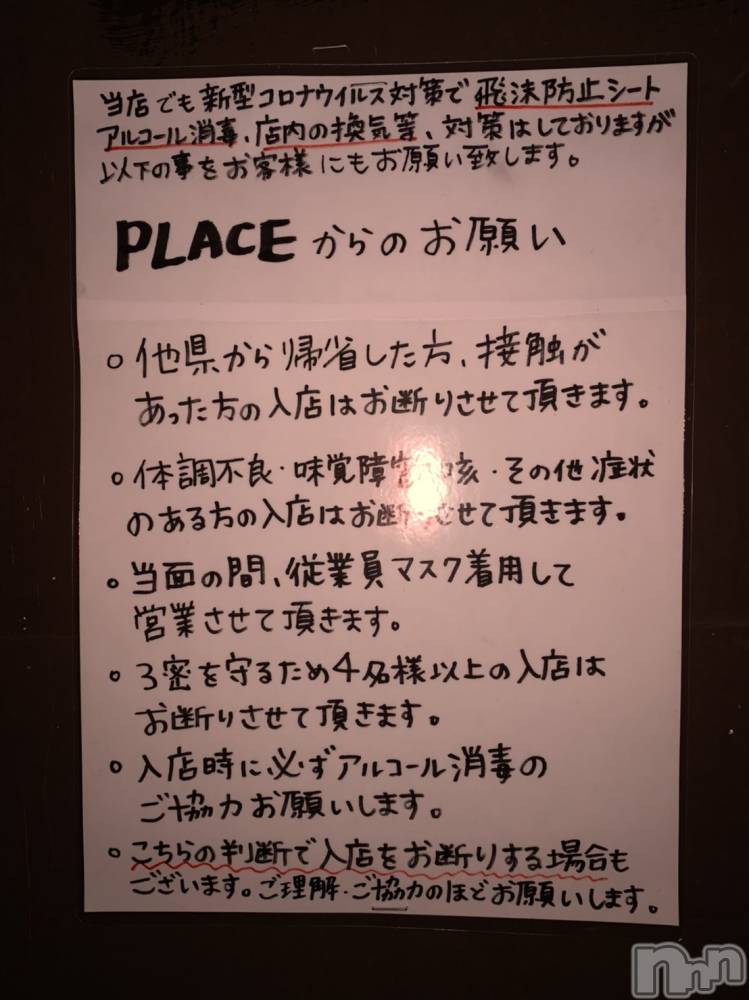 当店でも新型コロナウイルス対策で飛沫防止シート
アルコール消毒、店内の換気等、対策はしておりますが
以下の事をお客様にもお願い致します。
PLACEからのお願い
○他県から帰省した方、接触が
あった方の入店はお断りさせて頂きます。
○体調不良・味覚障害 咳・その他症状
のある方の入店はお断りさせて頂きます。
○当面の間、従業員マスク着用して
営業させて頂きます。
○3密を守るため4名様以上の入店は
お断りさせて頂きます。
○入店時に必ずアルコール消毒の
ご協力お願いします。
○こちらの判断で入店をお断りする場合も
ございます。ご理解・ご協力のほどお願いします。
nnn